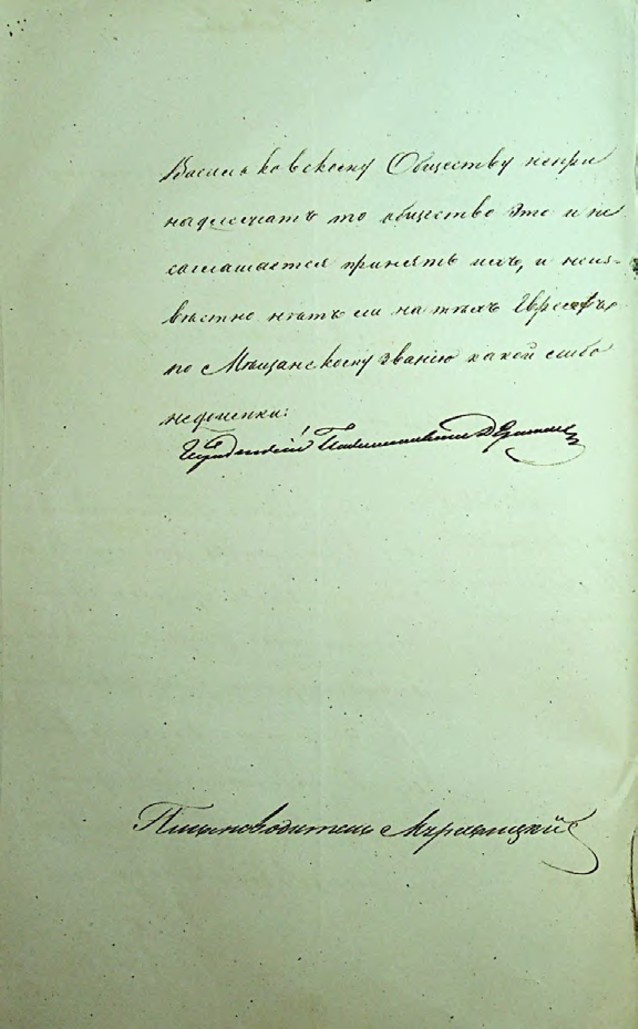 Васильковскому Обществу непри
надлежатъ то общество это и не
соглашается принять ихъ, и неиз-
вѣстно нѣтъ ли на тѣхъ Евреяхъ
по Мѣщанскому званию какой либо
недоимки:
Письмоводитель